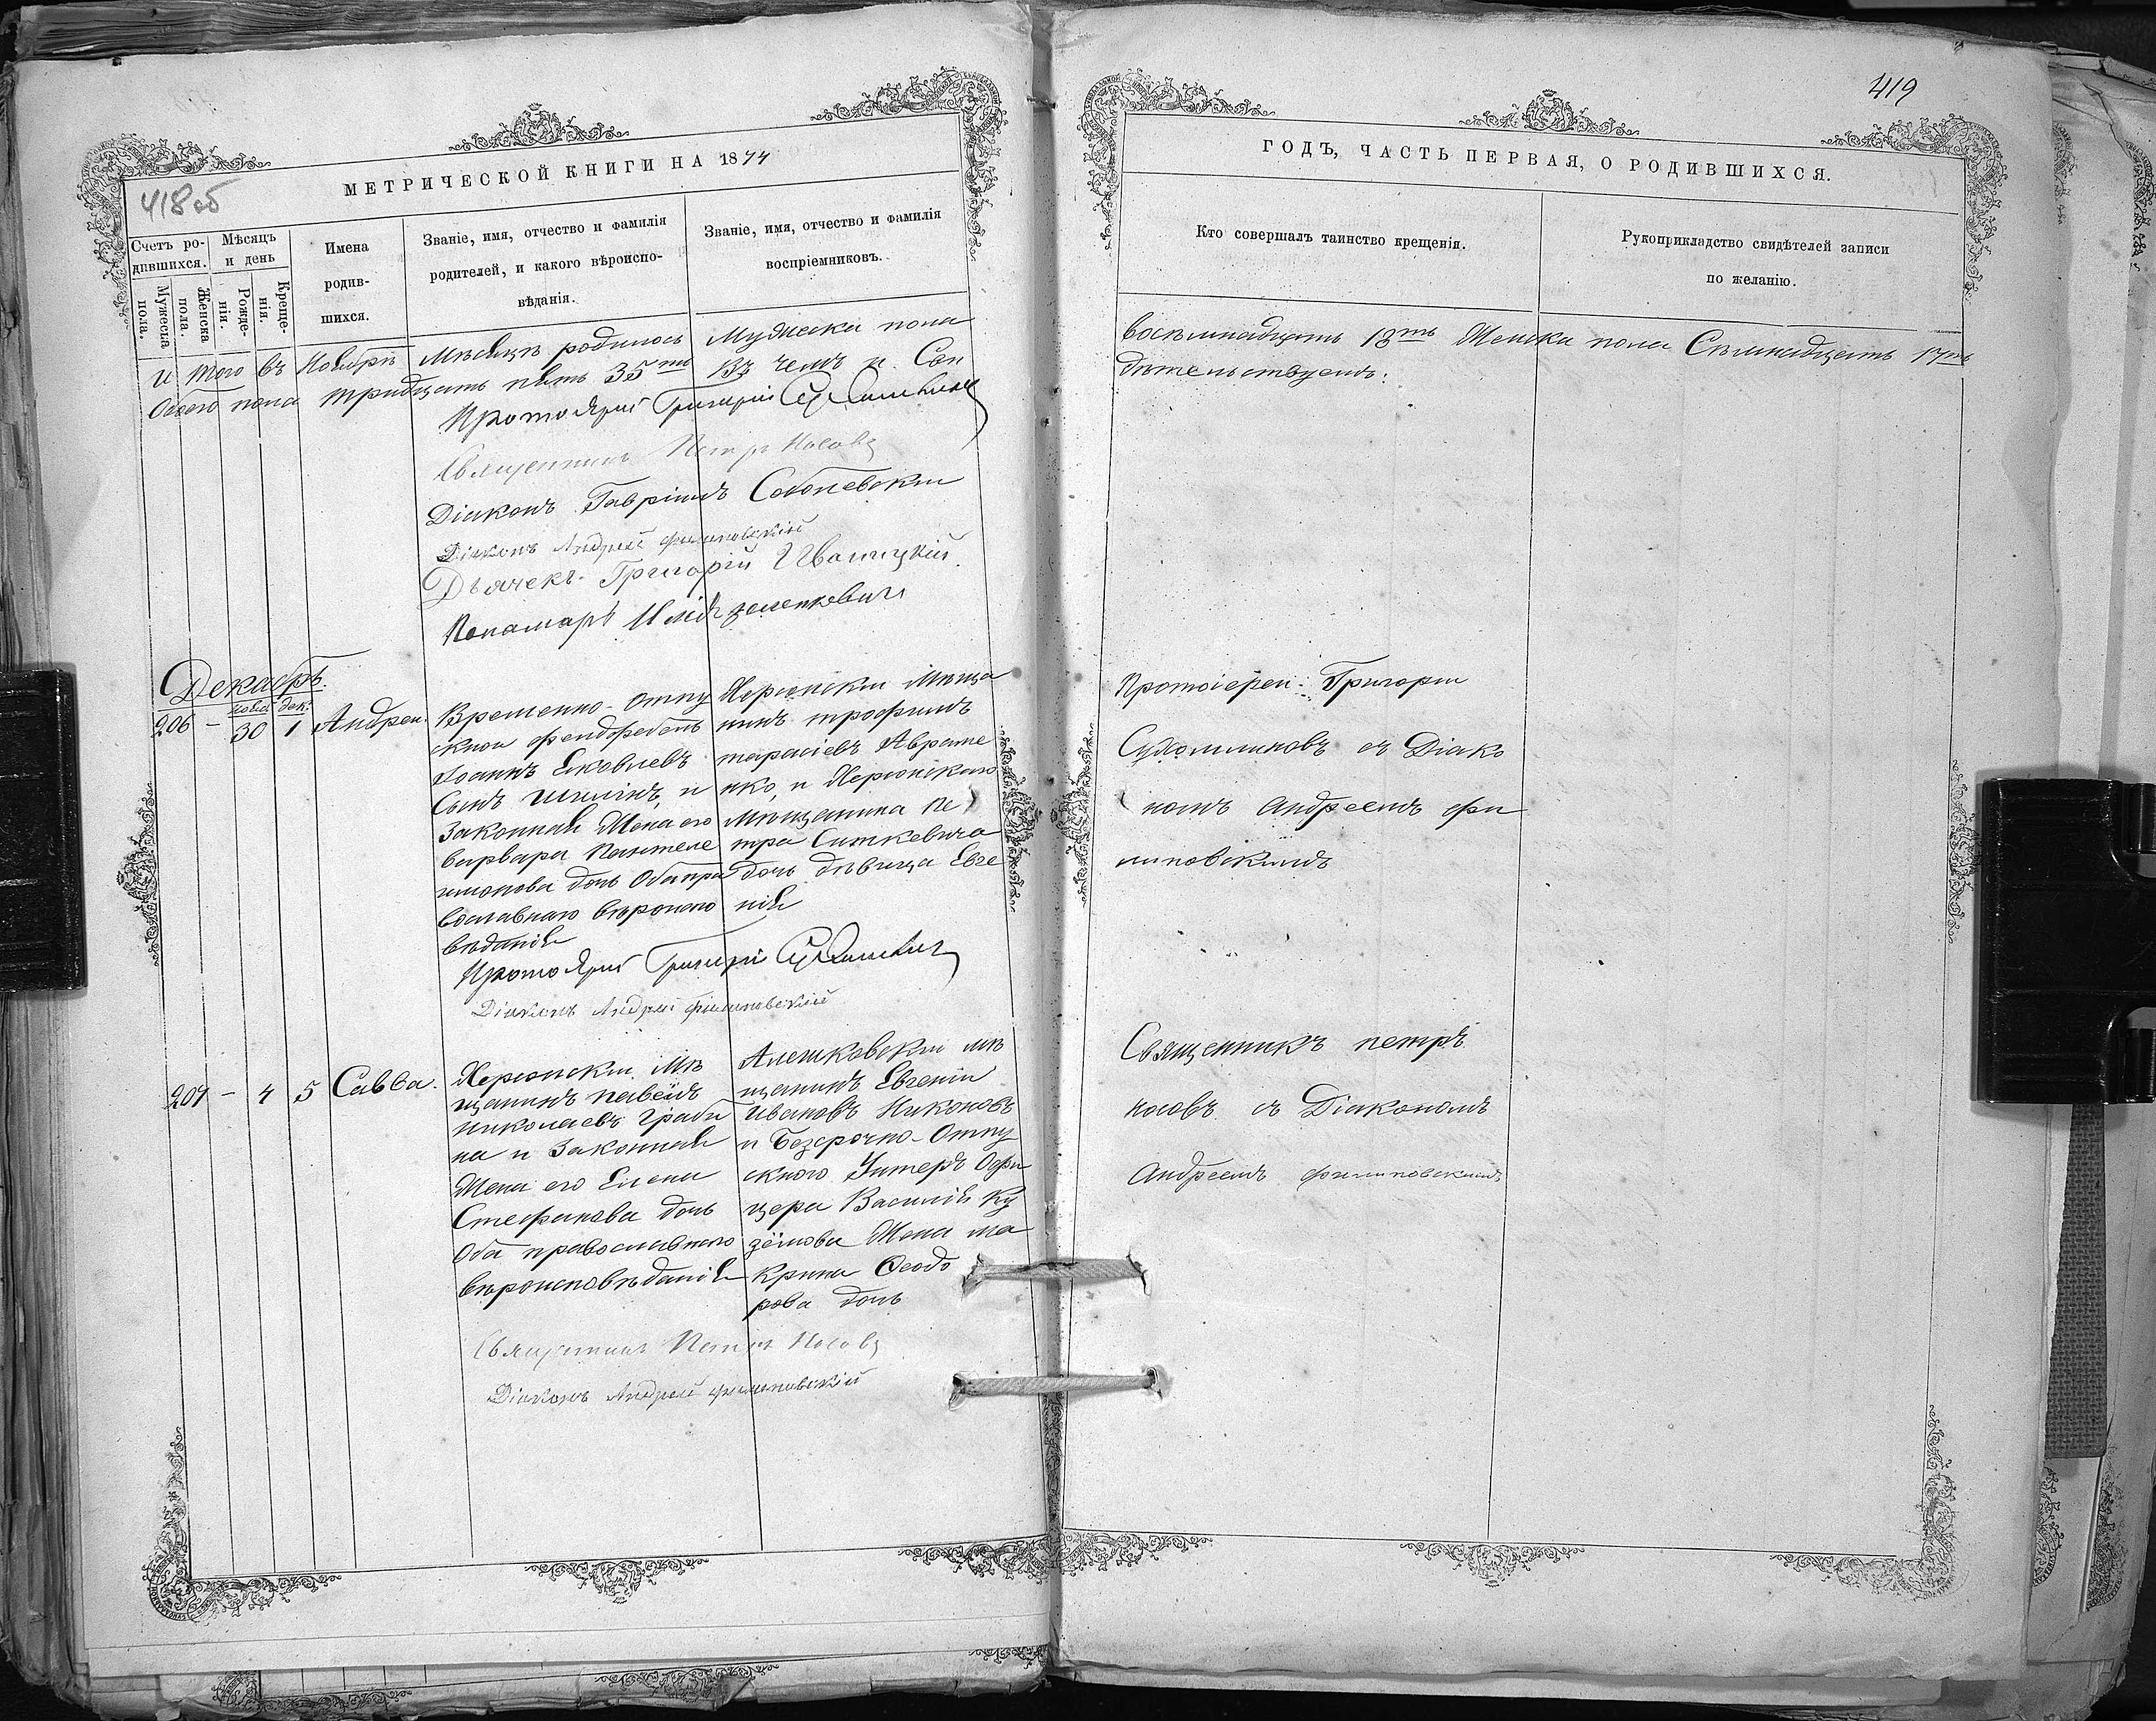 419
МЕТРИЧЕСКОЙ КНИГИ НА 1874
ГОДЪ, ЧАСТЬ ПЕРВАЯ, О РОДИВШИХСЯ.
418об
Счетъ ро-
дившихся.
Мужеска
пола.
Женска
пола.
Мѣсяцъ
и день
Рожде-
нія.
Креще-
нія.
Имена
родив-
шихся.
Званіе, имя, отчество и фамилія
родителей, и какого вѣроиспо-
вѣданія.
Званіе, имя, отчество и фамилія
воспріемниковъ.
Кто совершалъ таинство крещенія.
Рукоприкладство свидѣтелей записи
по желанію.
И того въ Ноябрѣ Мѣсяцѣ родилось Мужеска пола
восемнадцать 18ть Женска пола Семнадцать 17ть
Обоего пола тридцать пять 35ть Въ чемъ и Сви
дѣтельствуемъ:
Протоіерей Григорій
Священникъ Петръ Носовъ
Діаконъ Гавріилъ Соболевскій
Діаконъ Андрей Филиповскій
Дьячекъ Григорій Иваницкій
Пономарь
Декабрь.
нояб. дек.
206 - 30 1 Андрей.
Временно-отпу
скной
Іоаннъ Яковлевъ
Сынъ Шилінъ, и
Законная Жена его
варвара Пантеле
имонова дочь Оба пра
вославнаго вѣроиспо
вѣданія
Херсонскій Мѣща
нинъ трофимъ
тарасіевъ Авраме
нко, и Херсонскаго
Мѣщанина Пе
тра Ситкевича
дочь дѣвица Евге
нія
Протоіерей Григорій
Сухомлиновъ съ Діако
номъ Андреемъ Фи
липовскимъ
Протоіерей Григорій
Діаконъ Андрей Филиповскій
207 - 4 5 Савва.
Херсонскій Мѣ
щанинъ павелъ
николаевъ Граби
на и Законная
Жена его Елена
Стефанова дочь
Оба православнаго
вѣроисповѣданія
Алешковскій мѣ
щанинъ Евгеній
Ивановъ Никоновъ
и Безсрочно-Отпу
скного Унтеръ Офи
цера Василія Ку
зёмова Жена ма
крина Ѳеодо
рова дочь
Священникъ петръ
носовъ съ Діакономъ
Андреемъ филиповскимъ
Священникъ Петръ Носовъ
Діаконъ Андрей Филиповскій